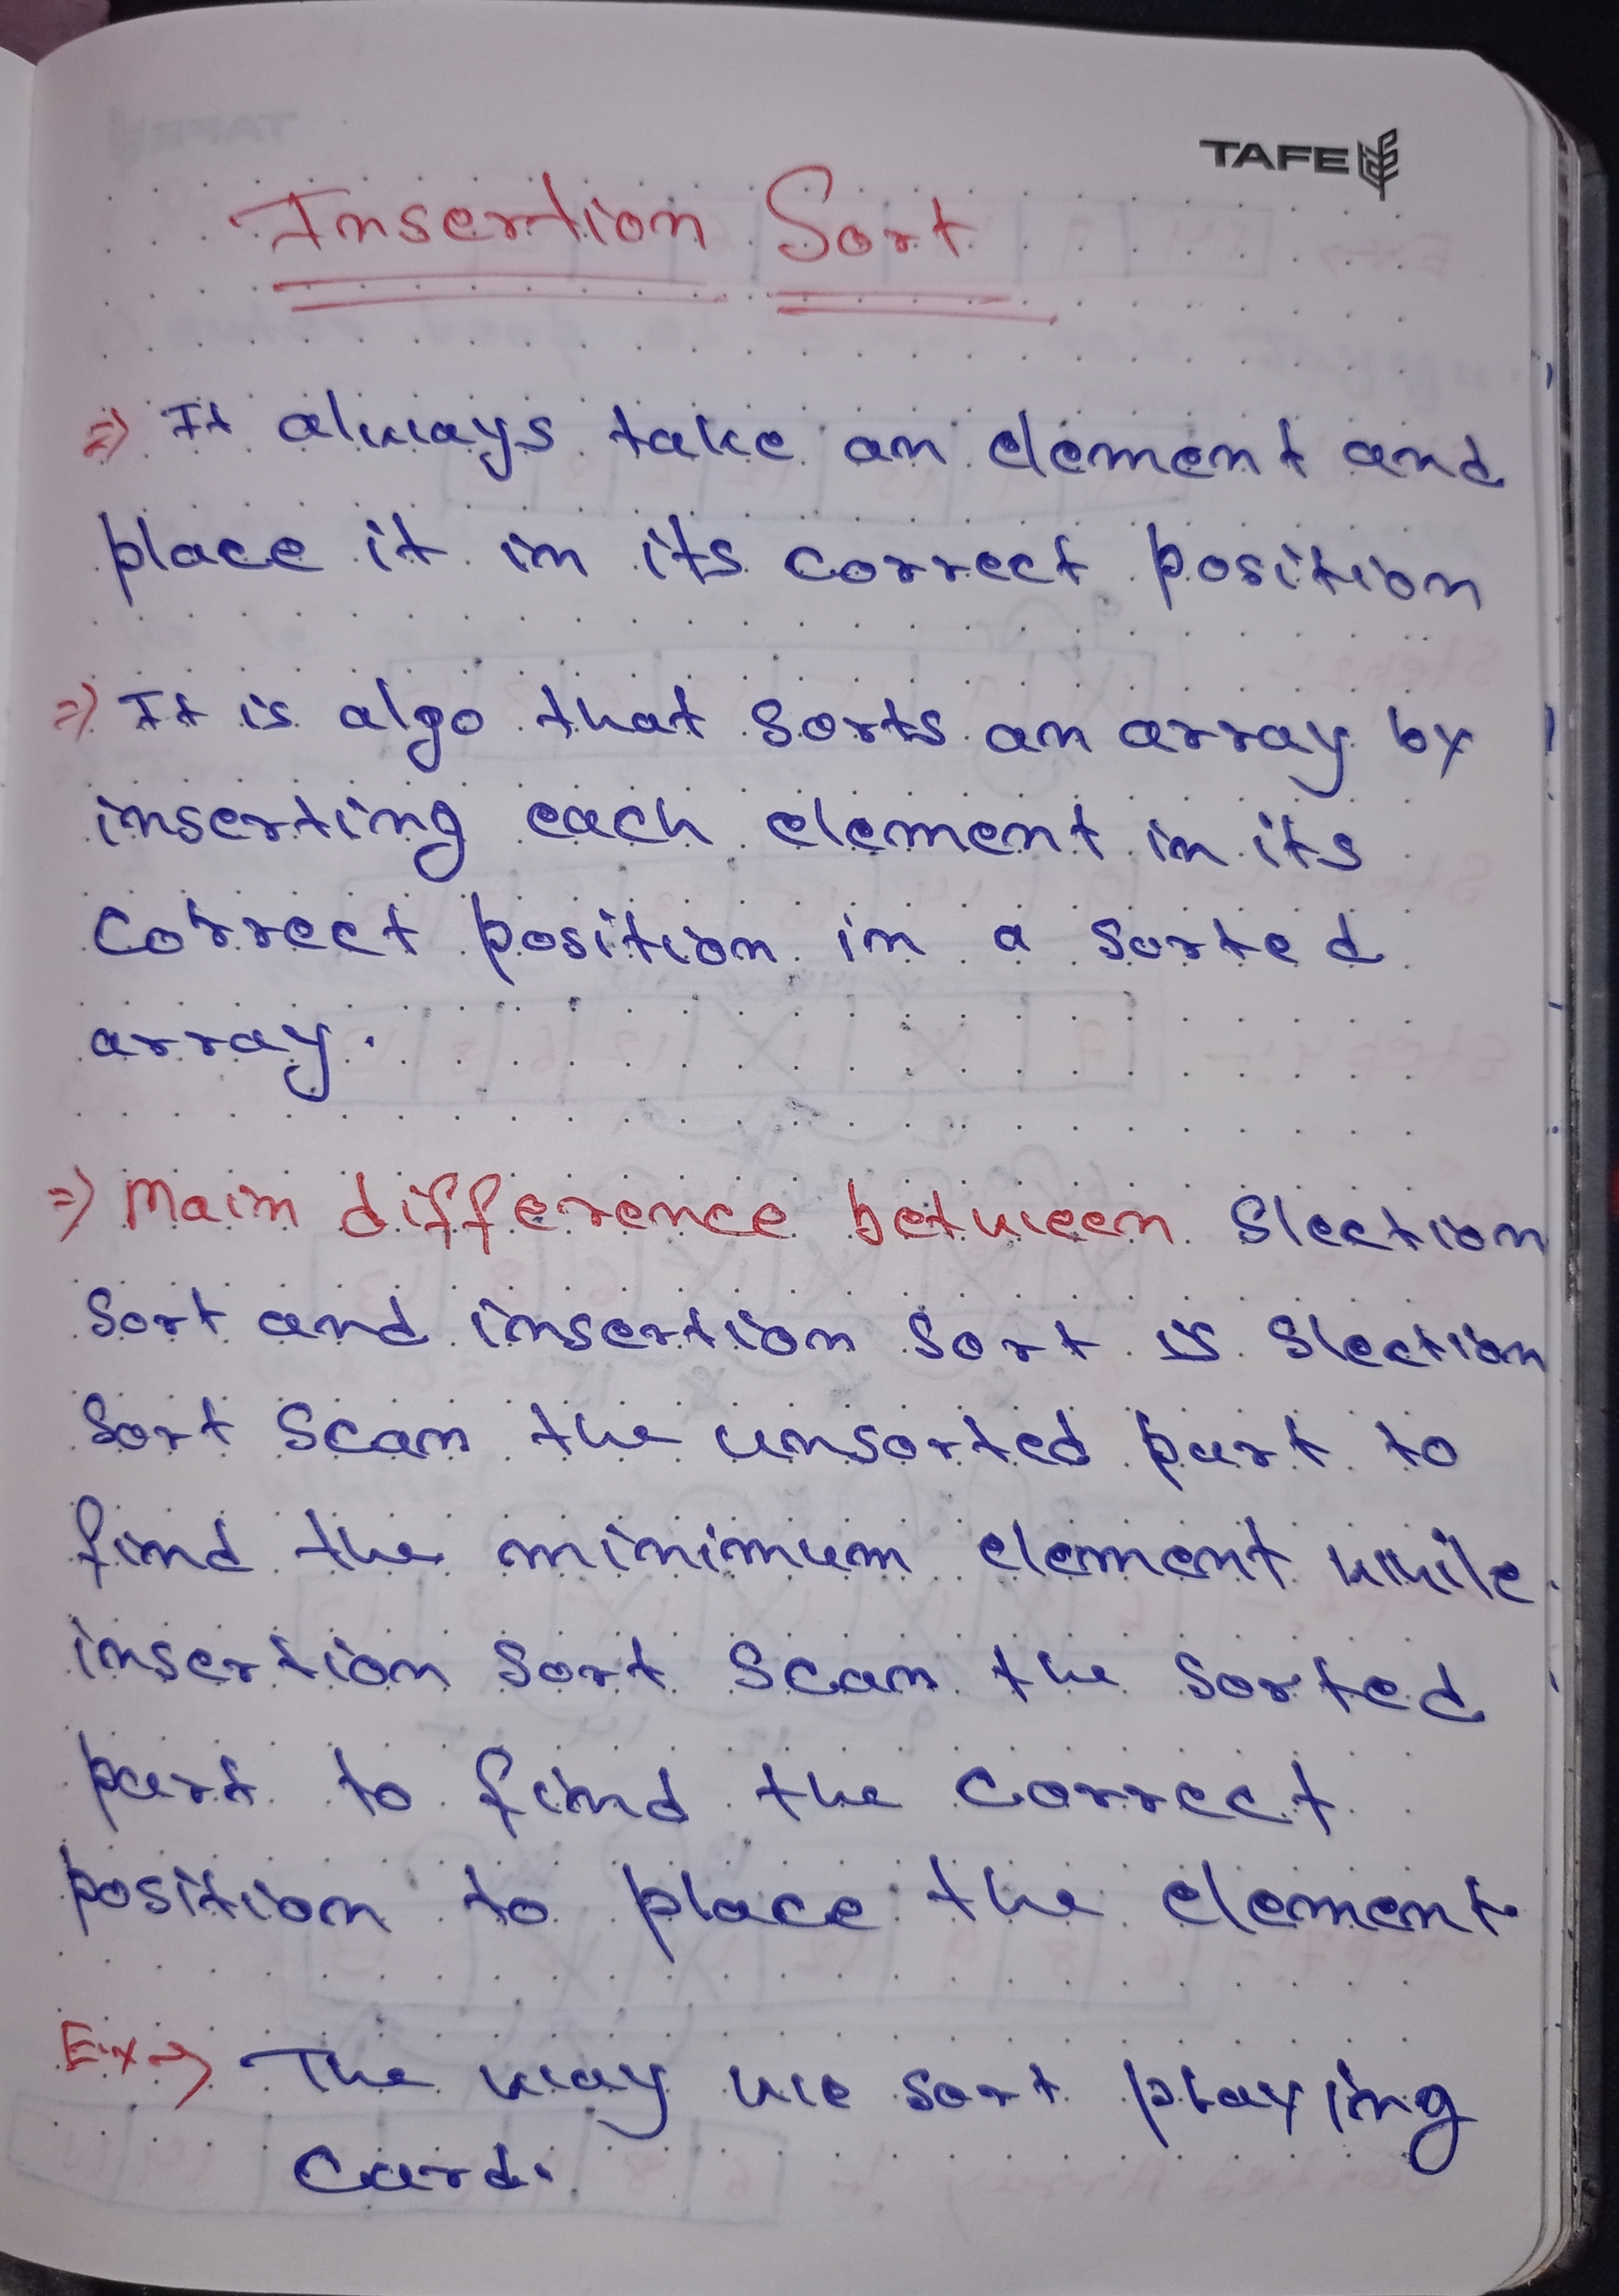 TAFE
Insertion Sort
=> It always take an element and
place it in its correct position
=> It is algo that sorts an array by
inserting each element in its
correct position in a sorted
array.
=> Main difference between Slection
Sort and insertion sort is Slection
Sort Scan the unsorted part to
find the minimum element while
insertion sort scan the sorted
part to find the correct
position to place the element.
Ex→ The way we sort playing
Card.